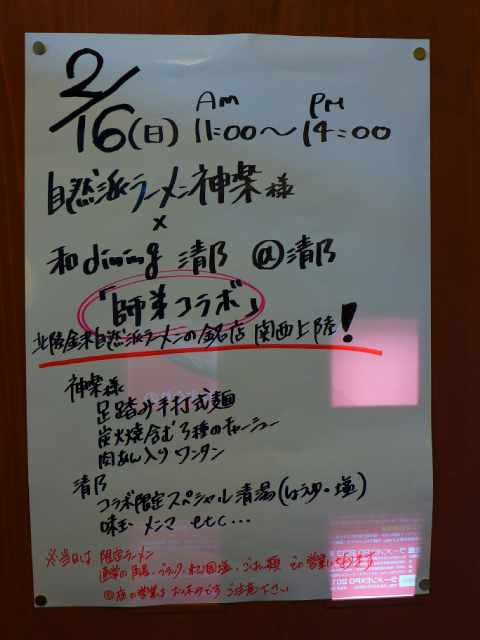 2/16(日) AM 11:00～PM 14:00
自然派ラーメン神楽様
×
和dining 清乃 @清乃
「師弟コラボ」
北陸金沢自然派ラーメンの銘店 関西上陸！
神楽様
足踏み手打式麺
炭火焼含む3種のチャーシュー
肉あん入りワンタン
清乃
コラボ限定スペシャル清湯(しょうゆ・塩)
味玉 メンマ etc...
※当日は、限定ラーメン
通常の角長、ブラック、
の営業になります
店の営業はお休みです ご注意下さい